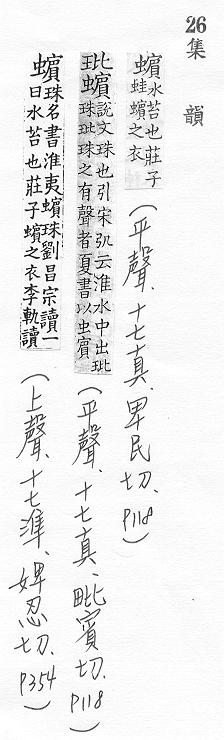 26
集韻
蠙 水苔也莊子蛙蠙之衣 (平聲、十七真、卑民切、P118)
玭蠙 說文珠也引宋弘云淮水中出玭珠玭珠之有聲者夏書以虫賓 (平聲、十七真、毗賓切、P118)
蠙 珠名書淮夷蠙珠劉昌宗讀一曰水苔也莊子蠙之衣李軌讀 (上聲、十七準、婢忍切、P354)